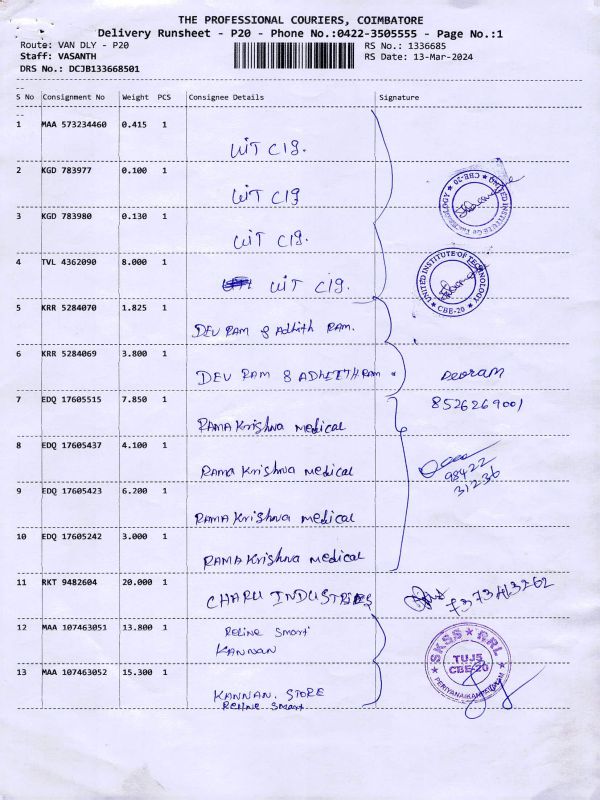 THE PROFESSIONAL COURIERS, COIMBATORE
Delivery Runsheet - P20 - Phone No.:0422-3505555 - Page No.:1
Route: VAN DLY - P20
RS No.: 1336685
Staff: VASANTH
RS Date: 13-Mar-2024
DRS No.: DCJB133668501
S No Consignment No Weight PCS Consignee Details Signature
1 MAA 573234460 0.415 1
UIT CIg.
2 KGD 783977 0.100 1
UIT CIg
3 KGD 783980 0.130 1
UIT CIg.
4 TVL 4362090 8.000 1
UIT CIg.
UNITED INSTITUTE OF TECHNOLOGY
CBE-20
5 KRR 5284070 1.825 1
DEV RAM & Adhith RAM.
6 KRR 5284069 3.800 1
DEV RAM & ADHITH RAM
Deoram
7 EDQ 17605515 7.850 1
8526269001
RAMA Krishna Medical
8 EDQ 17605437 4.100 1
Rama Krishna Medical
98422
31236
9 EDQ 17605423 6.200 1
RAMA Krishna Medical
10 EDQ 17605242 3.000 1
RAMA Krishna Medical
11 RKT 9482604 20.000 1
CHARU INDUSTRIES
12 MAA 107463051 13.800 1
Reline Smart
KANNAN
SKSS RRL
TUJ5
CBE-20
13 MAA 107463052 15.300 1
KANNAN. STORE
Reline Smart